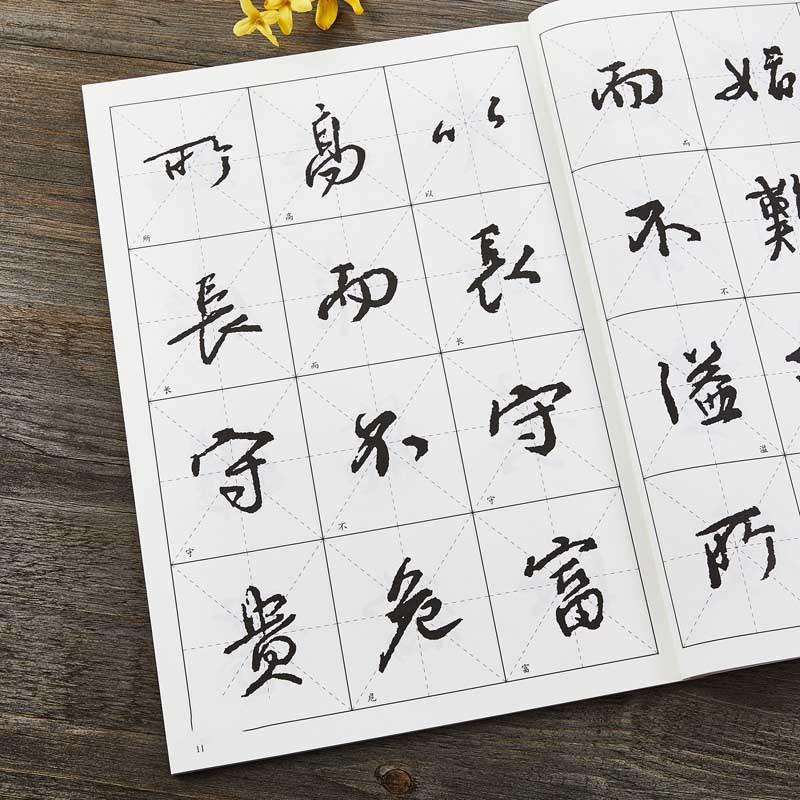 難
而不溢所
而
不
溢
以長守富
以
长
守
富
高而不危
高
而
不
危
所長守貴
所
长
守
11